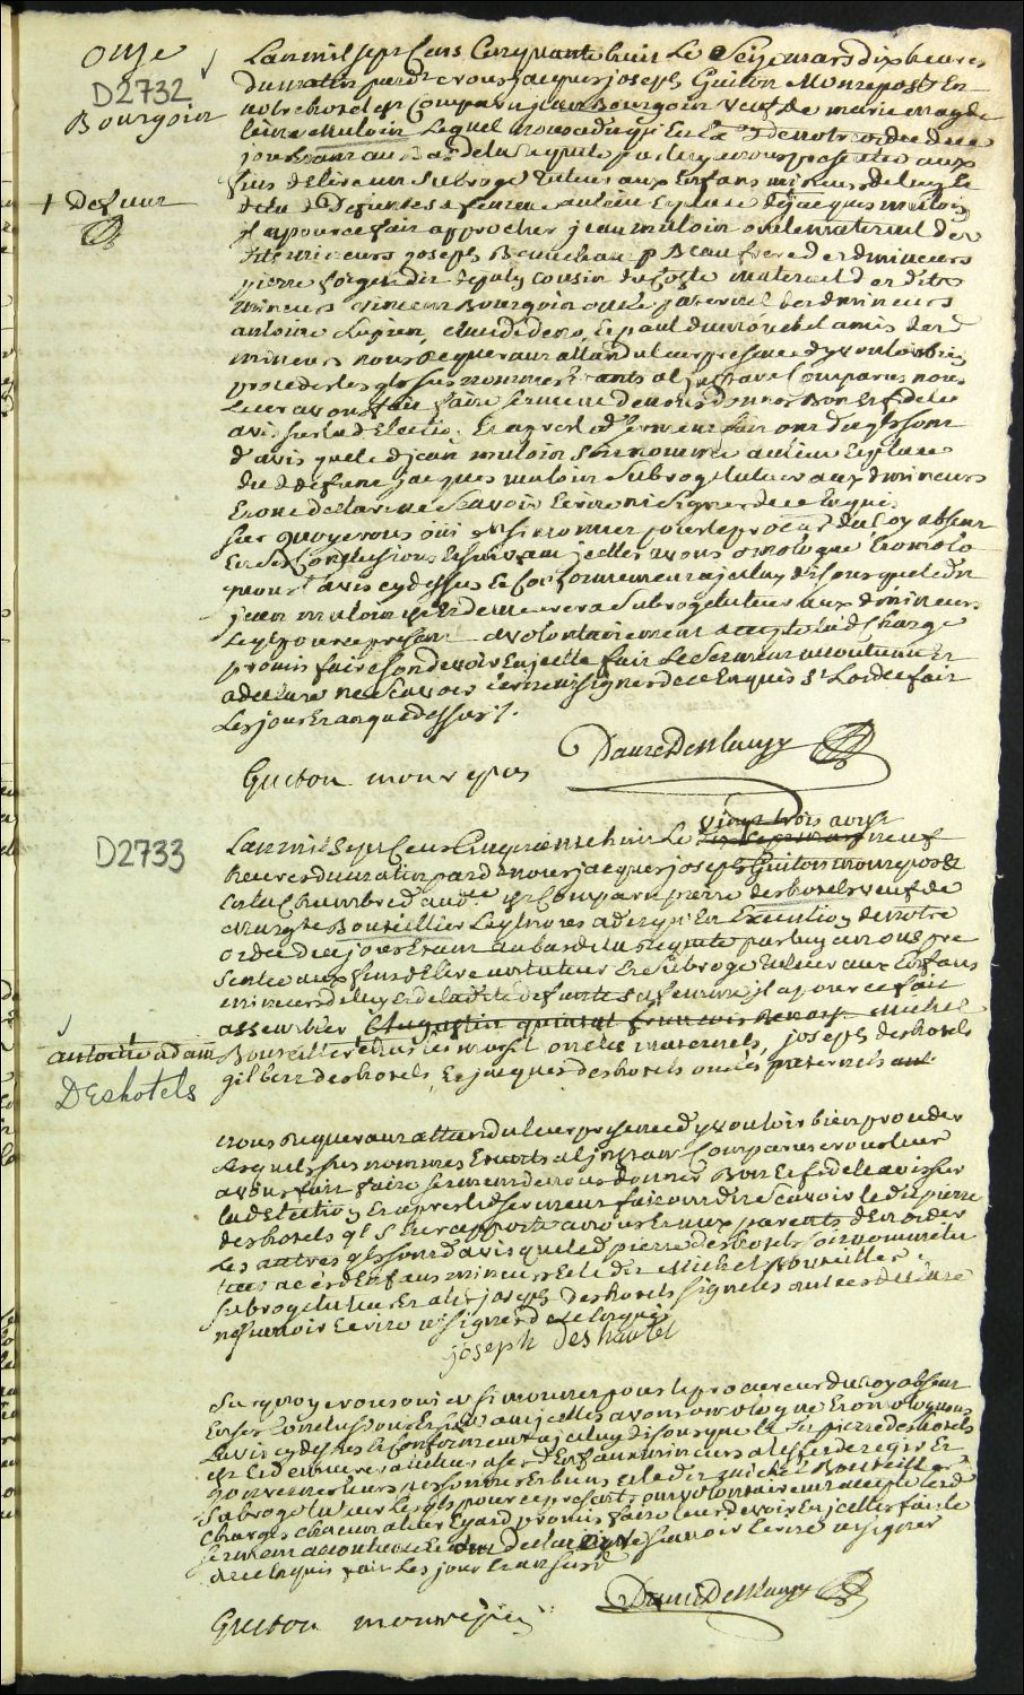 Onze
D2732
Bourgoin
Lan mil sept Cens Cinquante huit Le Seize mars dix heures
du matin pard^t nous jacques joseph Guiton Monrepos En
notre hotel est Comparu jean Bourgoin veuf de marie magde
leine muloin Lequel nous a dit qu'En Ex^on de notre ordce de ce
jour Etant au bas de la requete par luy a nous presentee aux
fins d'Elire un Subrogé tuteur aux Enfans mineurs de luy Et
de la d^e Defunte sa femme au lieu Et place de jacques muloin
il a pour ce fait approcher jean muloin oncle maternel des
dits mineurs joseph Beauchau Beaufrere des d mineurs
pierre cousin du Coste maternel des dits
mineurs vincent Bourgoin oncle paternel des d mineurs
antoine Et paul amis des d
mineurs nous requerant attendu leur presence d'y vouloir bien
proceder lesq^ls susnommes ants al instant Comparus nous
Leur avons fait faire serment de nous donner Bon Et fidele
avis sur la d Election Et apres led^t serment fait ont dit qls sont
d'avis que led jean muloin soit nommé au lieu Et place
du d defunt jacques muloin Subrogé tuteur aux d mineurs
Et ont declaré ne Scavoir Ecrire ni Signer de ce Enquis
Sur quoy nous oui M^r Simonnet pour le procur^r du Roy absent
En ses Conclusions Et suivant jcelles avons omologué Et omolo
guons L'avis cy dessus Et Conformement a jceluy disons que led^t
jean muloin est Et demeurera Subrogé tuteur aux d mineurs
Leql pour ce present a volontairement accepté lad Charge
promis faire son devoir En jcelle fait Le Serment accoutumé Et
a declaré ne Scavoir Ecrire ni signer de ce Enquis S^t Lord^ce fait
Les jour Et an que dessus ./.
+ Defunt
Guiton monrepos
Daine DeBlanzy
D2733
vingt trois avril
Lan mil sept Cens Cinquante huit Le dix sept mars neuf
heures du matin pard^t nous jacques joseph Guiton monrepos Et
En la Chambre d'aud^ce est Comparu pierre deshotels veuf de
marg^te Bouteillier Leql nous a dit qu'En Execution de notre
ordce de ce jour Etant au bas de la Requete par luy a nous pre
sentee aux fins d'Elire un tuteur Et Subrogé tuteur aux Enfans
mineurs de luy Et de la dite defunte sa femme il a pour ce fait
assembler Augustin quintal francois Michel
Bouteillier oncles maternels, joseph deshotels
gilbert deshotels, Et jacques deshotels oncles paternels
antoine adam
DEshotels
nous requerant attendu leur presence d'y vouloir bien proceder
Lesquels sus nommes Etants al jnstant Comparus nous leur
avons fait faire serment de nous donner Bon Et fidele avis sur
lad Election Et apres led serment fait ont dit Scavoir le dit pierre
deshotels ql s En rapporte a nous Et aux parents d'En decider
Les autres qls sont d'avis que led pierre deshotels soit nommé tu
teur a ces d Enfans mineurs Et le dit Michel Bouteiller
subrogé tuteur Et a led joseph deshotels signé les autres declaré
ne scavoir Ecrire ni signer de ce Enquis
joseph deshautel
Sur quoy nous oui M^r Simonnet pour le procureur du Roy absent
En ses Conclusions Et suivant jcelles avons omologué Et omologuons
L'avis cy dessus Et Conformement a jceluy disons que le dit pierre deshotels
est Et demeurera tuteur a ses d Enfans mineurs a l'effet de regir Et
gouverner leurs personnes Et biens Et le dit michel Bouteiller
Subrogé tuteur Lesqls pour ce presents ont volontairement accepté lesd
Charges chacun a leur Egard promis faire leur devoir En jcelles fait le
serment accoutumé Et ont declaré ne Scavoir Ecrire ni signer
de ce Enquis fait Les jour Et an susd
Guiton monrepos
Daine DeBlanzy